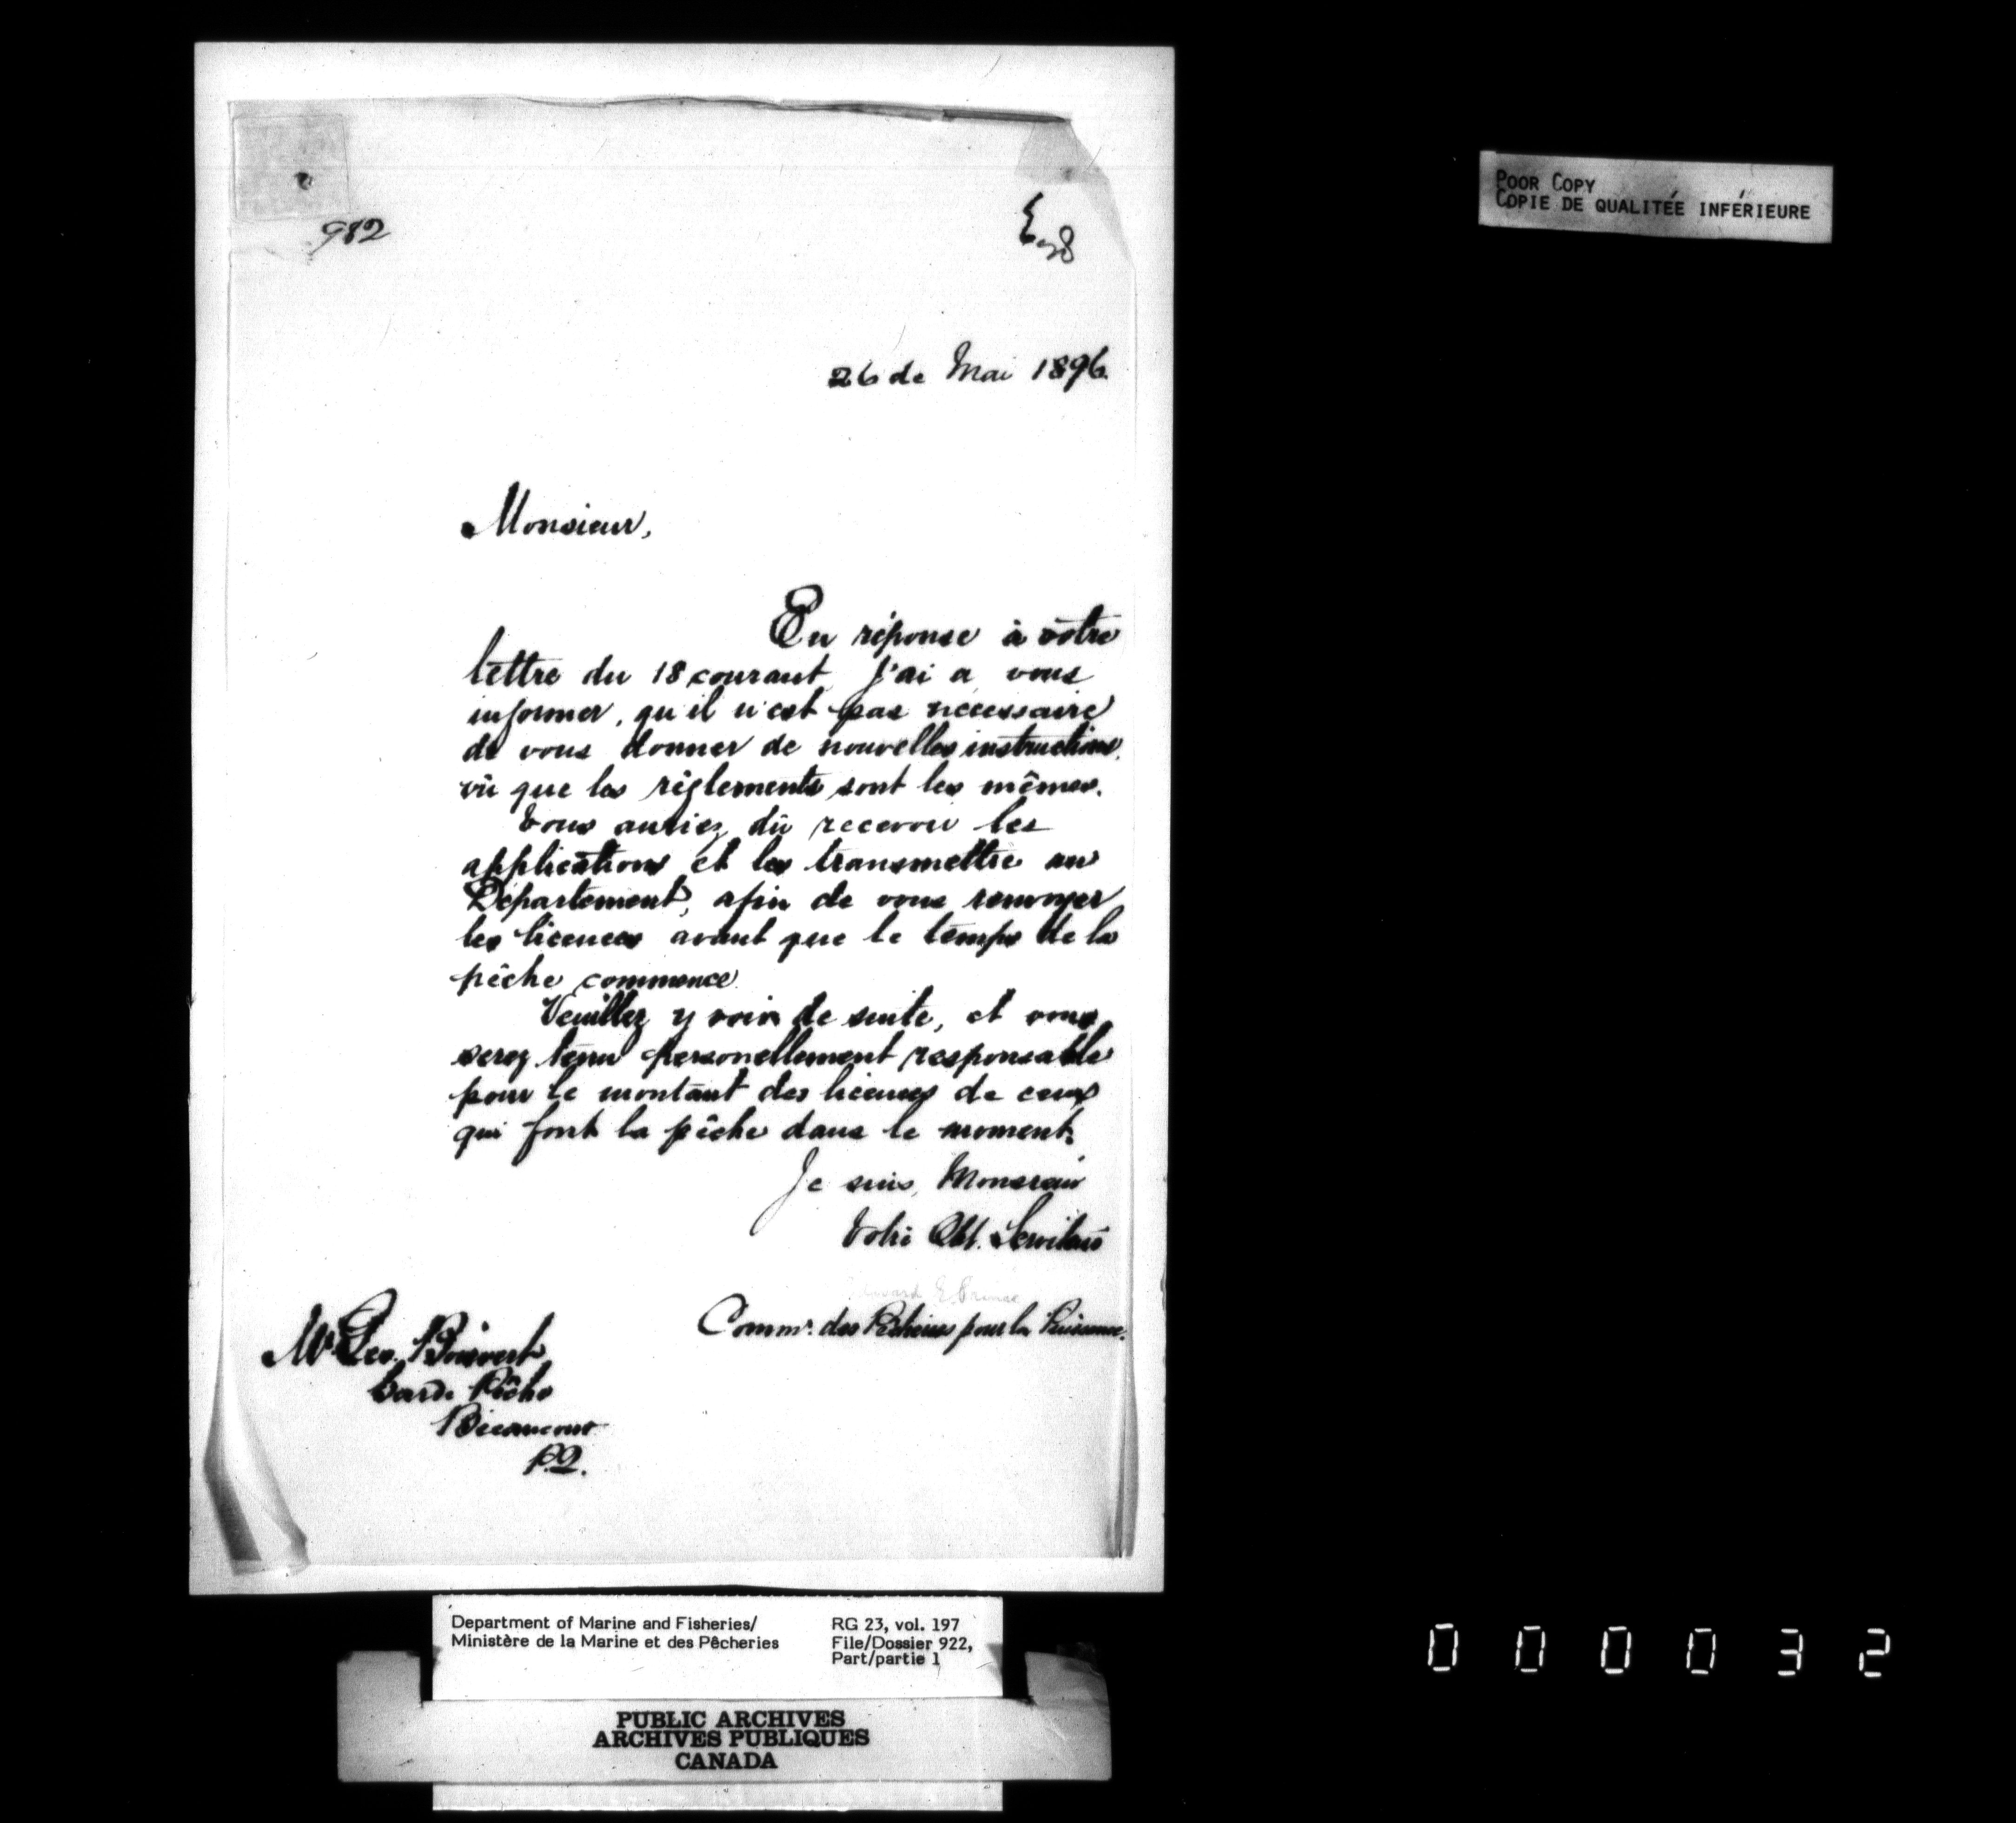 982
POOR COPY
COPIE DE QUALITÉE INFÉRIEURE
26 de Mai 1896.
Monsieur,
En réponse à vôtre
lettre du 18 courant j'ai a vous
informer, qu'il n'est pas nécessaire
de vous donner de nouvelles instructions,
vû que les règlements sont les mêmes.
Vous auriez dû recevoir les
applications et les transmettre au
Département, afin de vous renvoyer
les licences avant que le temps de la
pêche commence
Veuillez y voir de suite, et vous
serez tenu personellement responsable
pour le montant des licences de ceux
qui font la pêche dans le moment.
Je suis, Monsieur
Votre Obt. Serviteur
Edward E. Prince
Commr. des Pêcheries pour la Puissance.
Mr. Geo. Boisvert
Garde Pêche
Becancour
P.Q.
Department of Marine and Fisheries/
Ministère de la Marine et des Pêcheries
RG 23, vol. 197
File/Dossier 922,
Part/partie 1
PUBLIC ARCHIVES
ARCHIVES PUBLIQUES
CANADA
000032